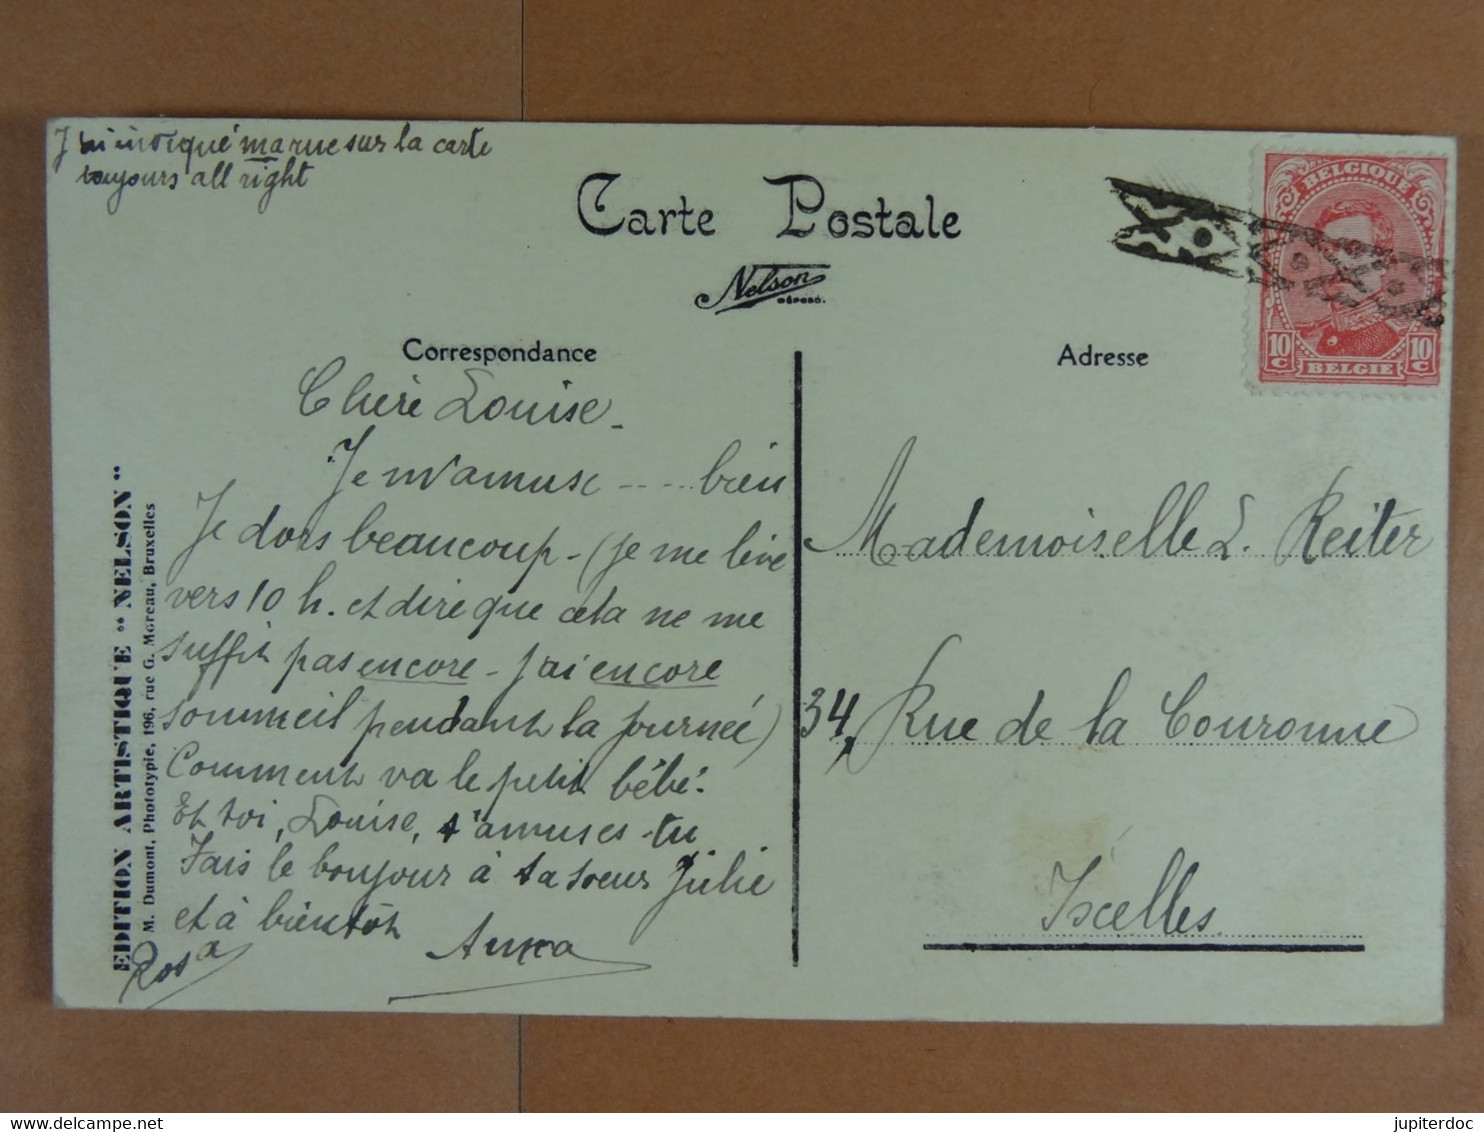 J'ai marqué ma rue sur la carte
toujours all right
Carte Postale
Nelson
DÉPOSÉ.
BELGIQUE
10 C
10 C
BELGIE
Correspondance
Chère Louise.
Je m'amuse ..... bien
Je dors beaucoup - (je me lève
vers 10 h. et dire que cela ne me
suffit pas encore - j'ai encore
sommeil pendant la journée)
Comment va le petit bébé.
Et toi, Louise, t'amuses-tu
Fais le bonjour à ta soeur Julie
et à bientôt
Rosa
EDITION ARTISTIQUE "NELSON"
M. Dumont, Phototypie, 196, rue G. Moreau, Bruxelles
Adresse
Mademoiselle L. Reiter
34, Rue de la Couronne
Ixelles.
delcampe.net
jupiterdoc